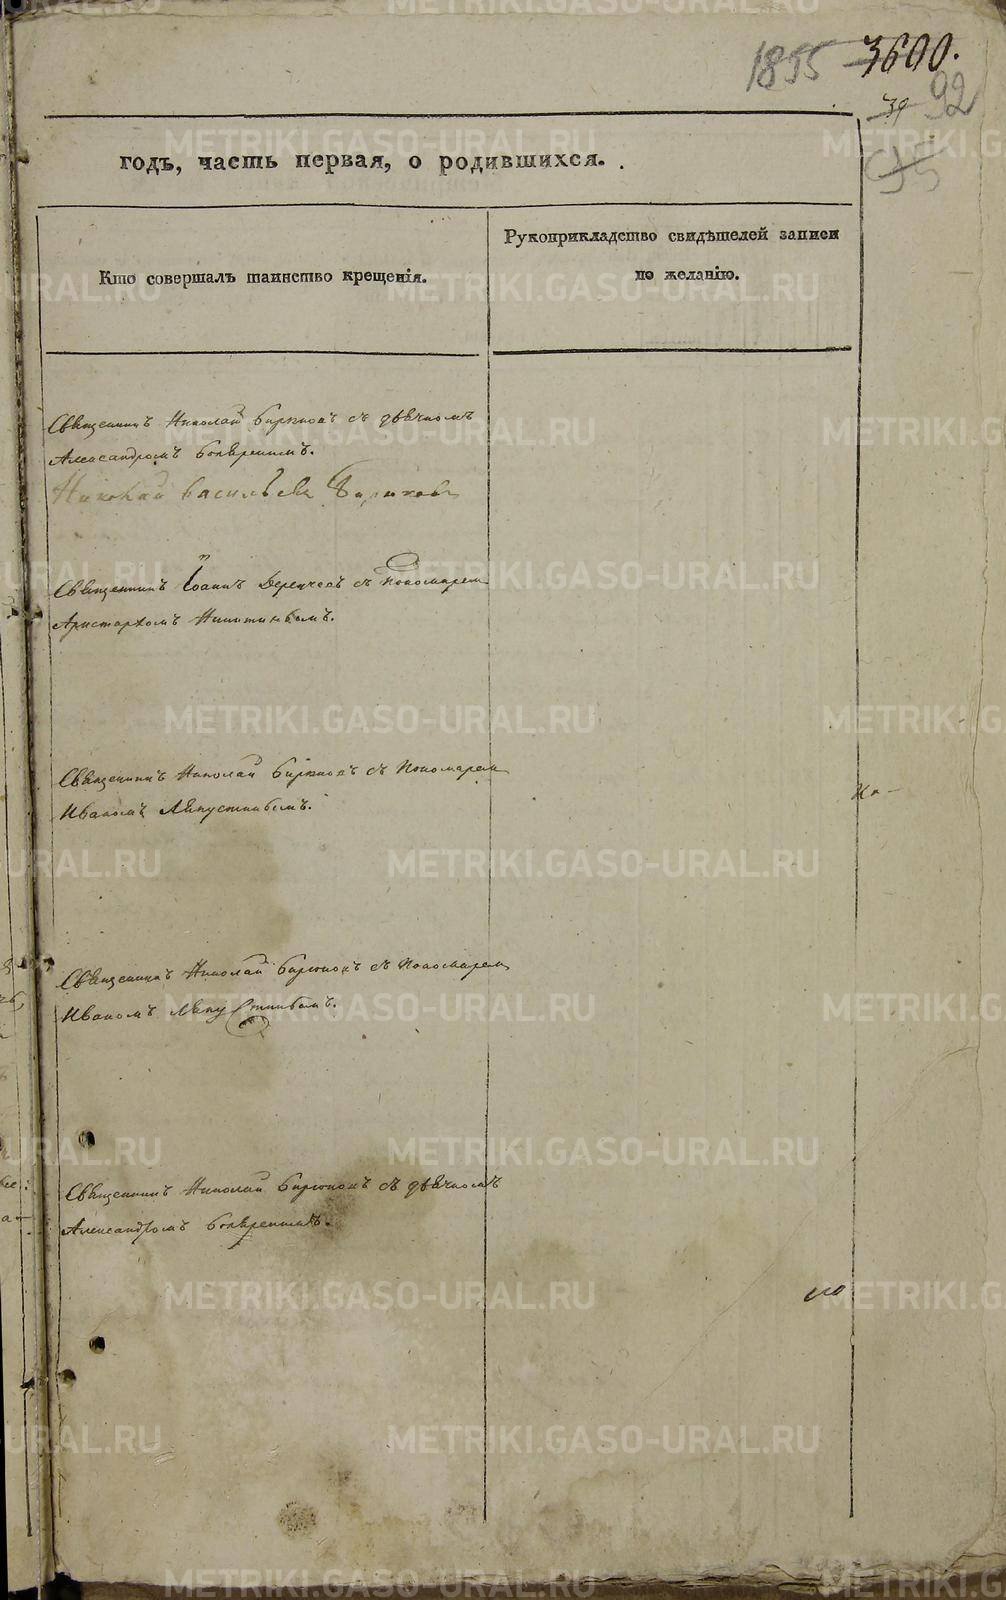 1855 3600.
39 92
годъ, часть первая, о родившихся.
Кто совершалъ таинство крещенія.
Рукоприкладство свидѣтелей записи
по желанію.
Священникъ Николай Бирюковъ съ дьячкомъ
Александромъ
Николай Васильевъ Бирюковъ
Священникъ Іоаннъ съ Пономаремъ
Аристархомъ Никитинымъ.
Священникъ Николай Бирюковъ съ Пономаремъ
Иваномъ Ляпустинымъ.
Священникъ Николай Бирюковъ съ Пономаремъ
Иваномъ Ляпустинымъ.
Священникъ Николай Бирюковъ съ дьячкомъ
Александромъ
METRIKI.GASO-URAL.RU